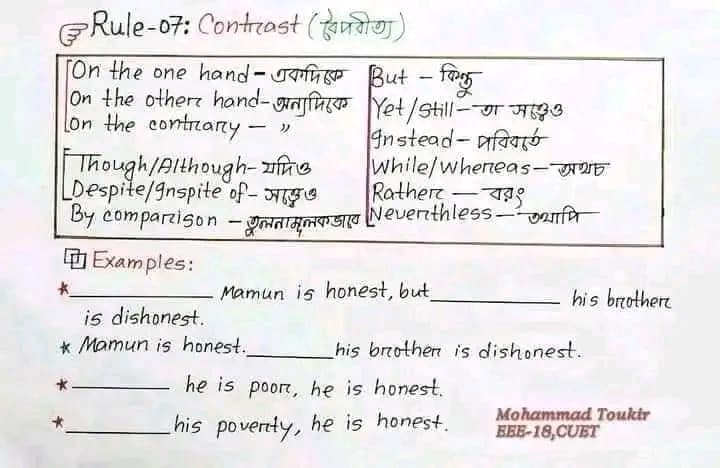 Rule-07: Contrast (বৈপরীত্য)
On the one hand - একদিকে
On the other hand - অন্যদিকে
On the contrary - "
Though/Although - যদিও
Despite/Inspite of - সত্ত্বেও
By comparison - তুলনামূলকভাবে
But - কিন্তু
Yet/Still - তা সত্ত্বেও
Instead - পরিবর্তে
While/Whereas - অথচ
Rather - বরং
Neverthless - তথাপি
Examples:
* ____________ Mamun is honest, but ____________ his brother
is dishonest.
* Mamun is honest. ________ his brother is dishonest.
* ________ he is poor, he is honest.
* ________ his poverty, he is honest.
Mohammad Toukir
EEE-18,CUET